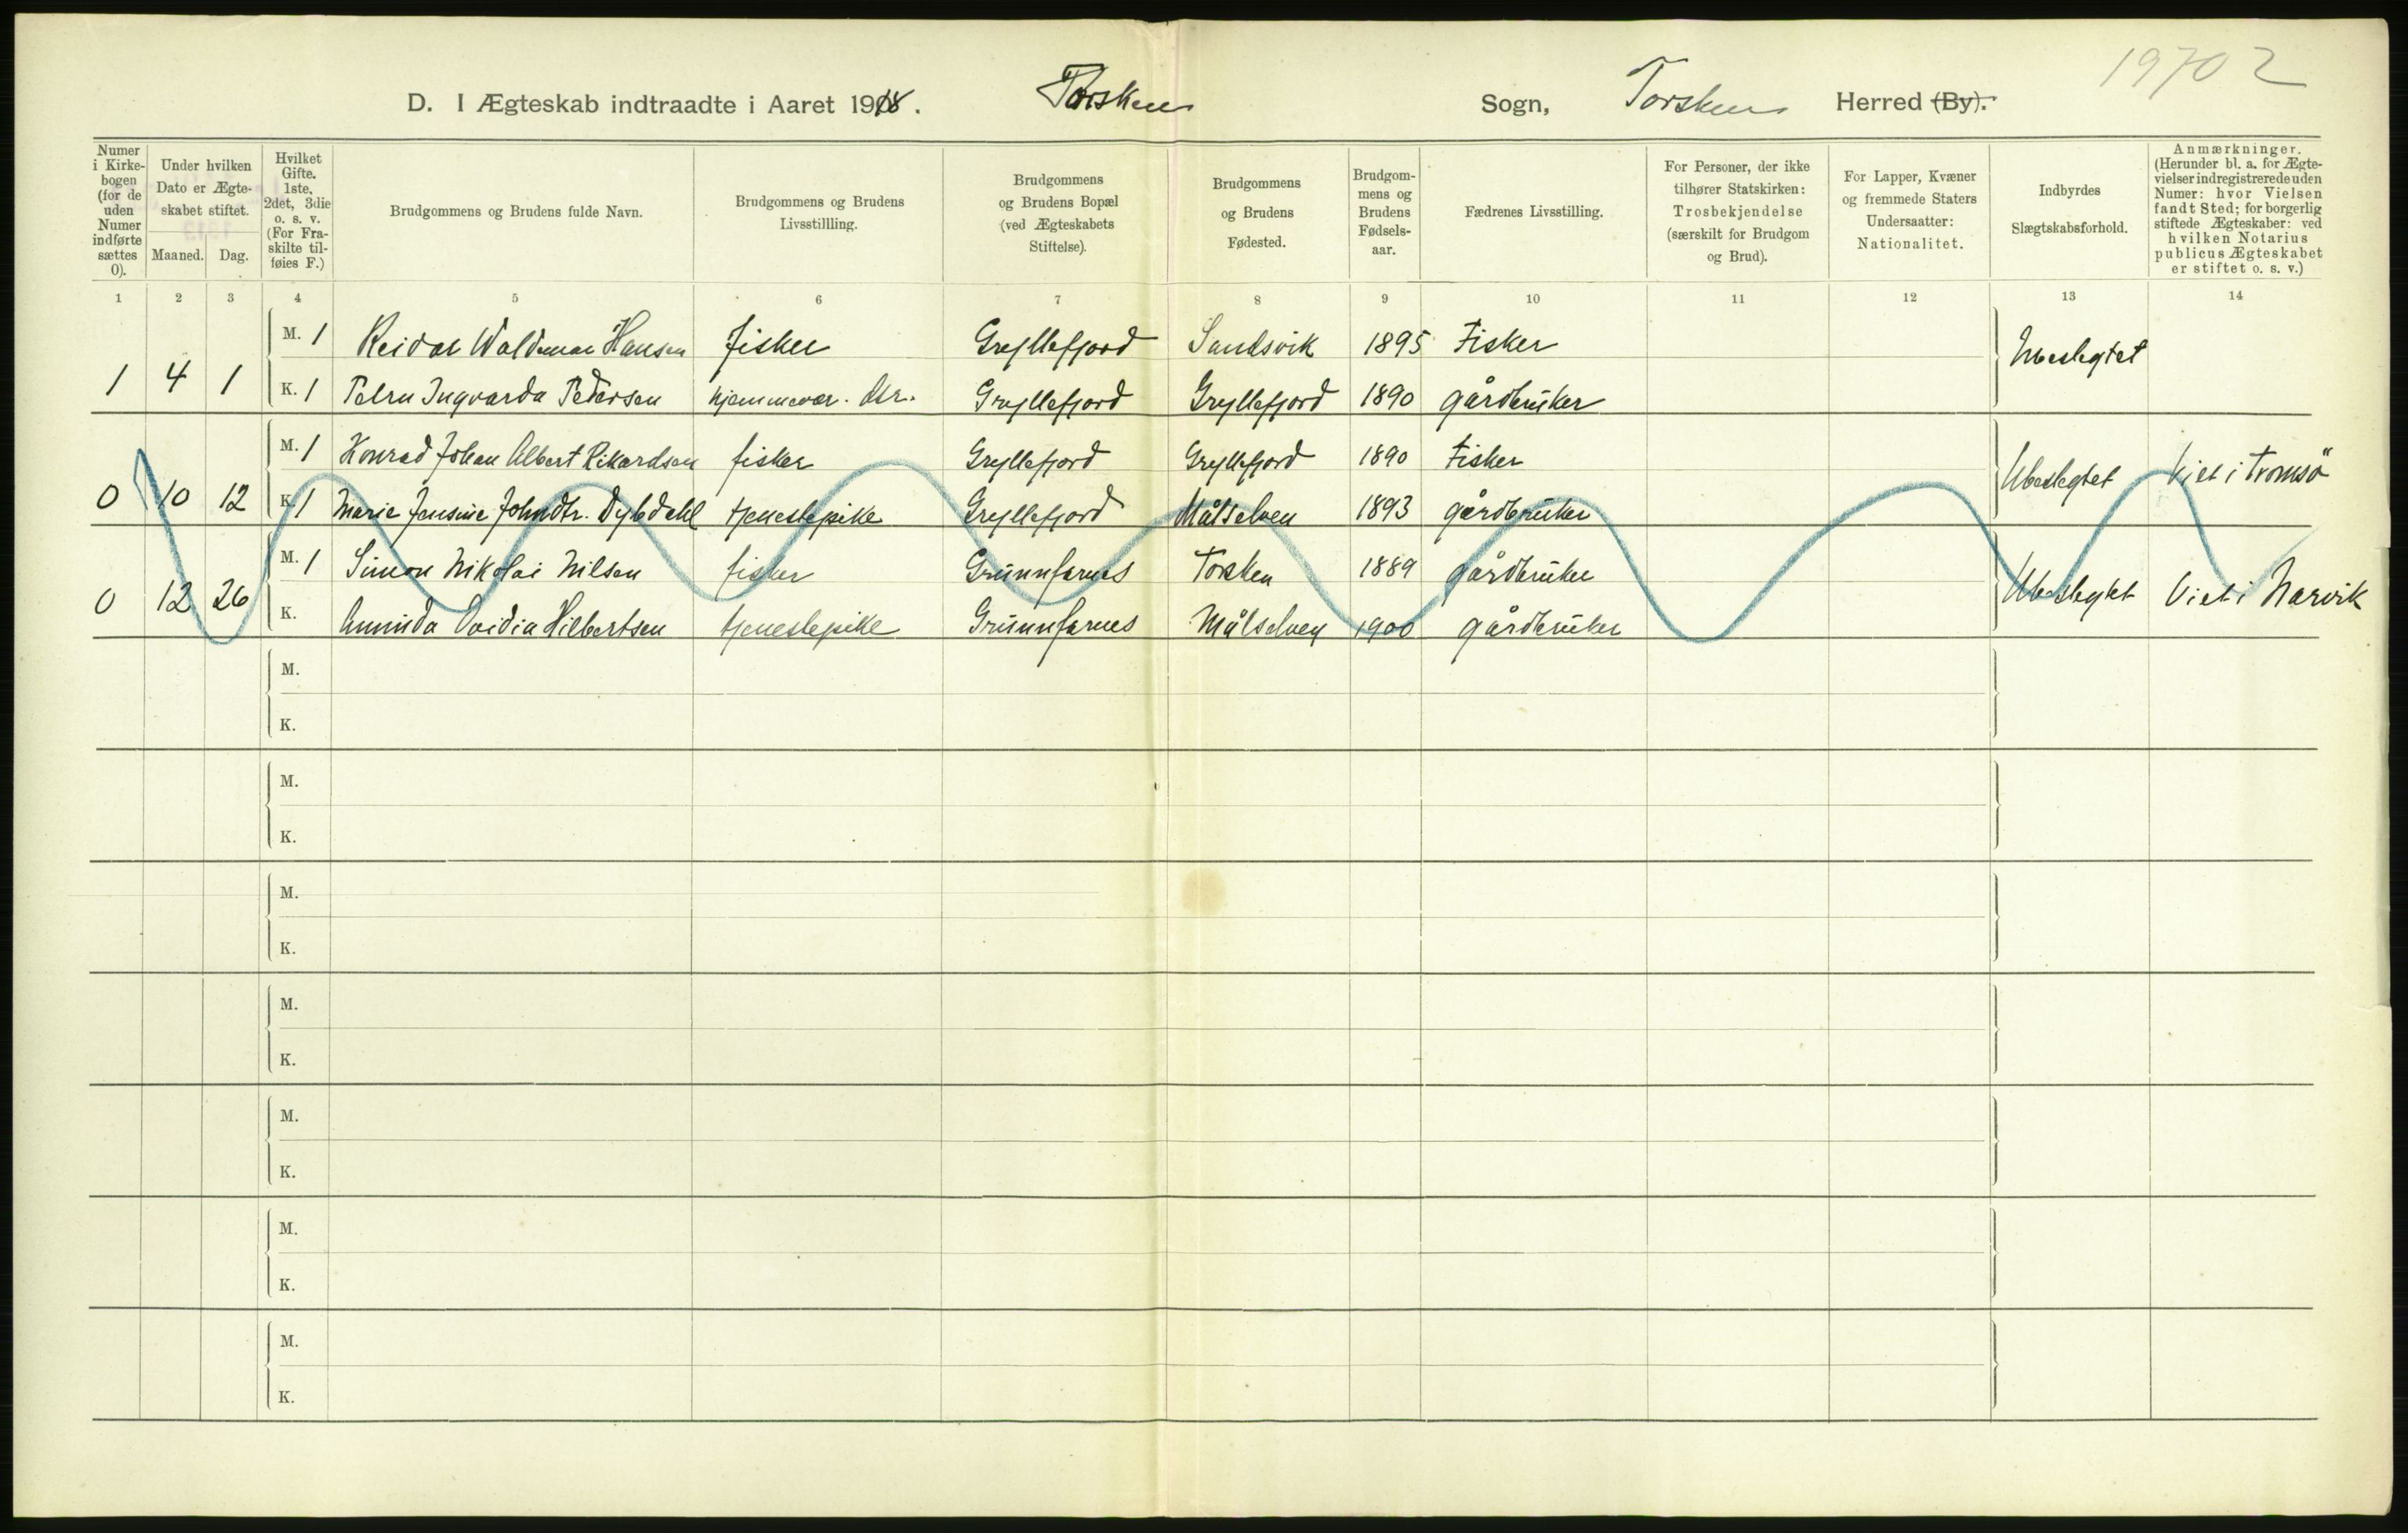 19702
D. I Ægteskab indtraadte i Aaret 1918. Torsken Sogn, Torsken Herred (By).
Numer i Kirkebogen (for de uden Numer indførte sættes 0).
Under hvilken Dato er Ægteskabet stiftet.
Maaned. Dag.
Hvilket Gifte. 1ste, 2det, 3die o. s. v. (For Fraskilte tilføies F.)
Brudgommens og Brudens fulde Navn.
Brudgommens og Brudens Livsstillling.
Brudgommens og Brudens Bopæl (ved Ægteskabets Stiftelse).
Brudgommens og Brudens Fødested.
Brudgommens og Brudens Fødselsaar.
Fædrenes Livsstilling.
For Personer, der ikke tilhører Statskirken: Trosbekjendelse (særskilt for Brudgom og Brud).
For Lapper, Kvæner og fremmede Staters Undersaatter: Nationalitet.
Indbyrdes Slægtskabsforhold.
Anmærkninger. (Herunder bl. a. for Ægtevielser indregistrerede uden Numer: hvor Vielsen fandt Sted; for borgerlig stiftede Ægteskaber: ved hvilken Notarius publicus Ægteskabet er stiftet o. s. v.)
1 2 3 4 5 6 7 8 9 10 11 12 13 14
M. 1 Reidar Waldemar Hansen fisker Gryllefjord Sandsvik 1895 Fisker Ubeslegtet
1 4 1 K. 1 Ingvarda Pedersen hjemmevær. dtr. Gryllefjord Gryllefjord 1890 gårdbruker
M. 1 Konrad Johan Albert Rikardsen fisker Gryllefjord Gryllefjord 1890 Fisker Ubeslegtet Viet i Tromsö
0 10 12 K. 1 Marie Jensine Johndtr. Dybdahl tjenestepike Gryllefjord Målselven 1893 gårdbruker
M. 1 Simon Nikolai Nilsen fisker Grunnfarnes Torsken 1889 gårdbruker Ubeslegtet Viet i Narvik
0 12 26 K. Hilbertsen tjenestepike Grunnfarnes Målselven 1900 gårdbruker
M.
K.
M.
K.
M.
K.
M.
K.
M.
K.
M.
K.
M.
K.